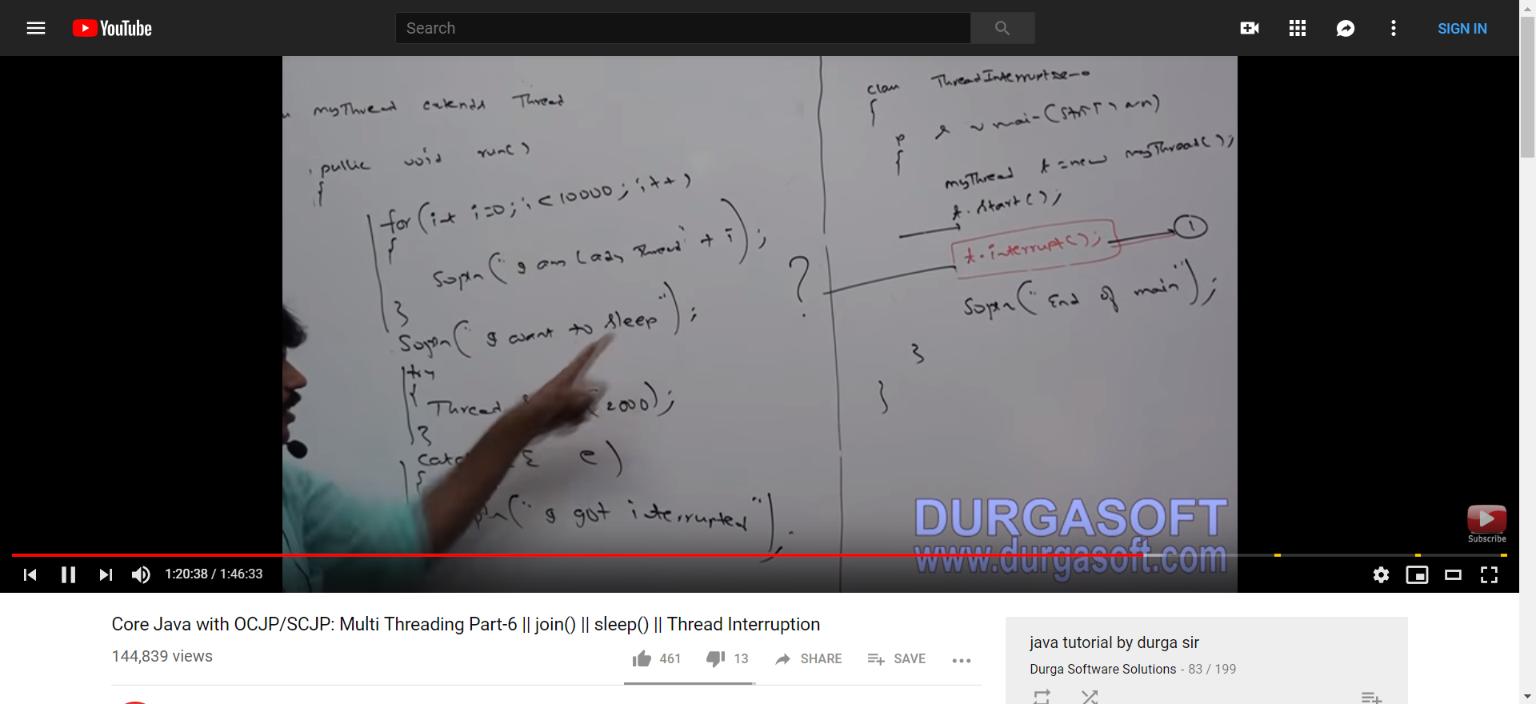 YouTube
Search
SIGN IN
myThread extends Thread
public void run()
{
for(int i=0; i<10000; i++)
{
Sopln("I am Lazy Thread"+i);
}
Sopln("I want to sleep");
try
{
Thread (2000);
}
e)
{
("I got interrupted");
?
class ThreadInterruptDemo
{
p s v main(String[]
{
myThread t=new myThread();
t.start();
t.interrupt();
1
Sopln("End of main");
}
}
DURGASOFT
www.durgasoft.com
Subscribe
1:20:38 / 1:46:33
Core Java with OCJP/SCJP: Multi Threading Part-6 || join() || sleep() || Thread Interruption
144,839 views
461
13
SHARE
SAVE
java tutorial by durga sir
Durga Software Solutions - 83 / 199